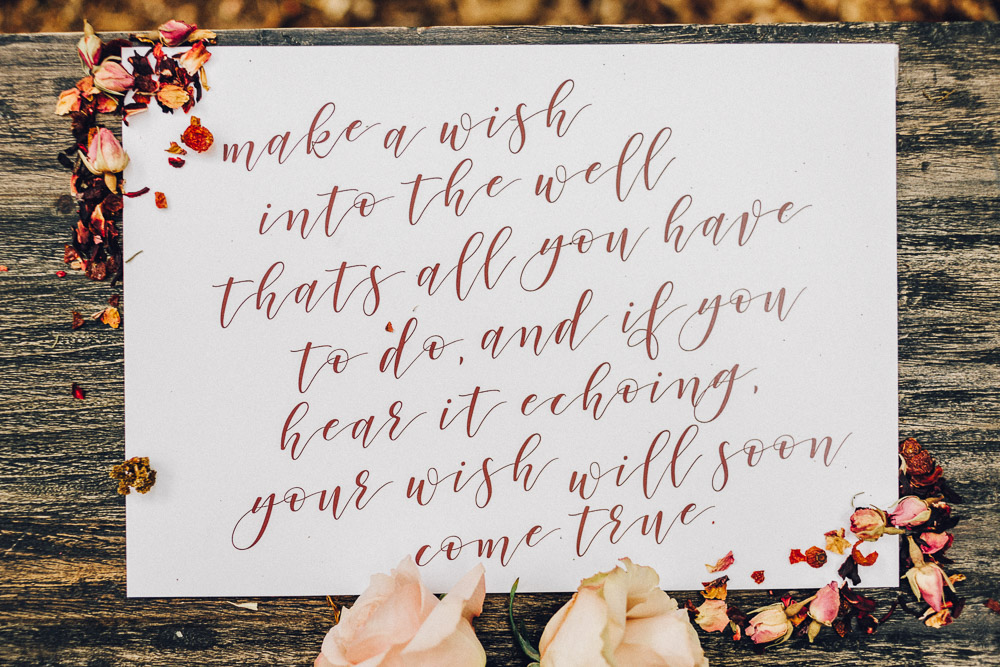 make a wish
into the well
thats all you have
to do, and if you
hear it echoing,
your wish will soon
come true.